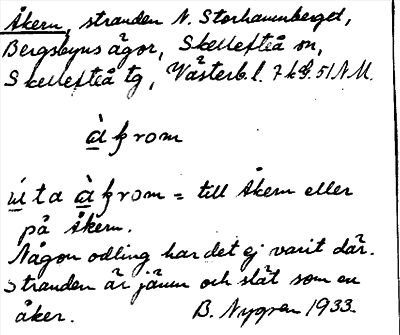 Åkern, stranden N. Storhamnberget,
Bergsbyns ägor, Skellefteå sn,
Skellefteå tg, Västerb. l. 7 k d. 51 N M.
à k rom
ú ta à k rom = till Åkern eller
på Åkern.
Någon odling har det ej varit där.
Stranden är jämn och slät som en
åker. B. Nygren 1933.